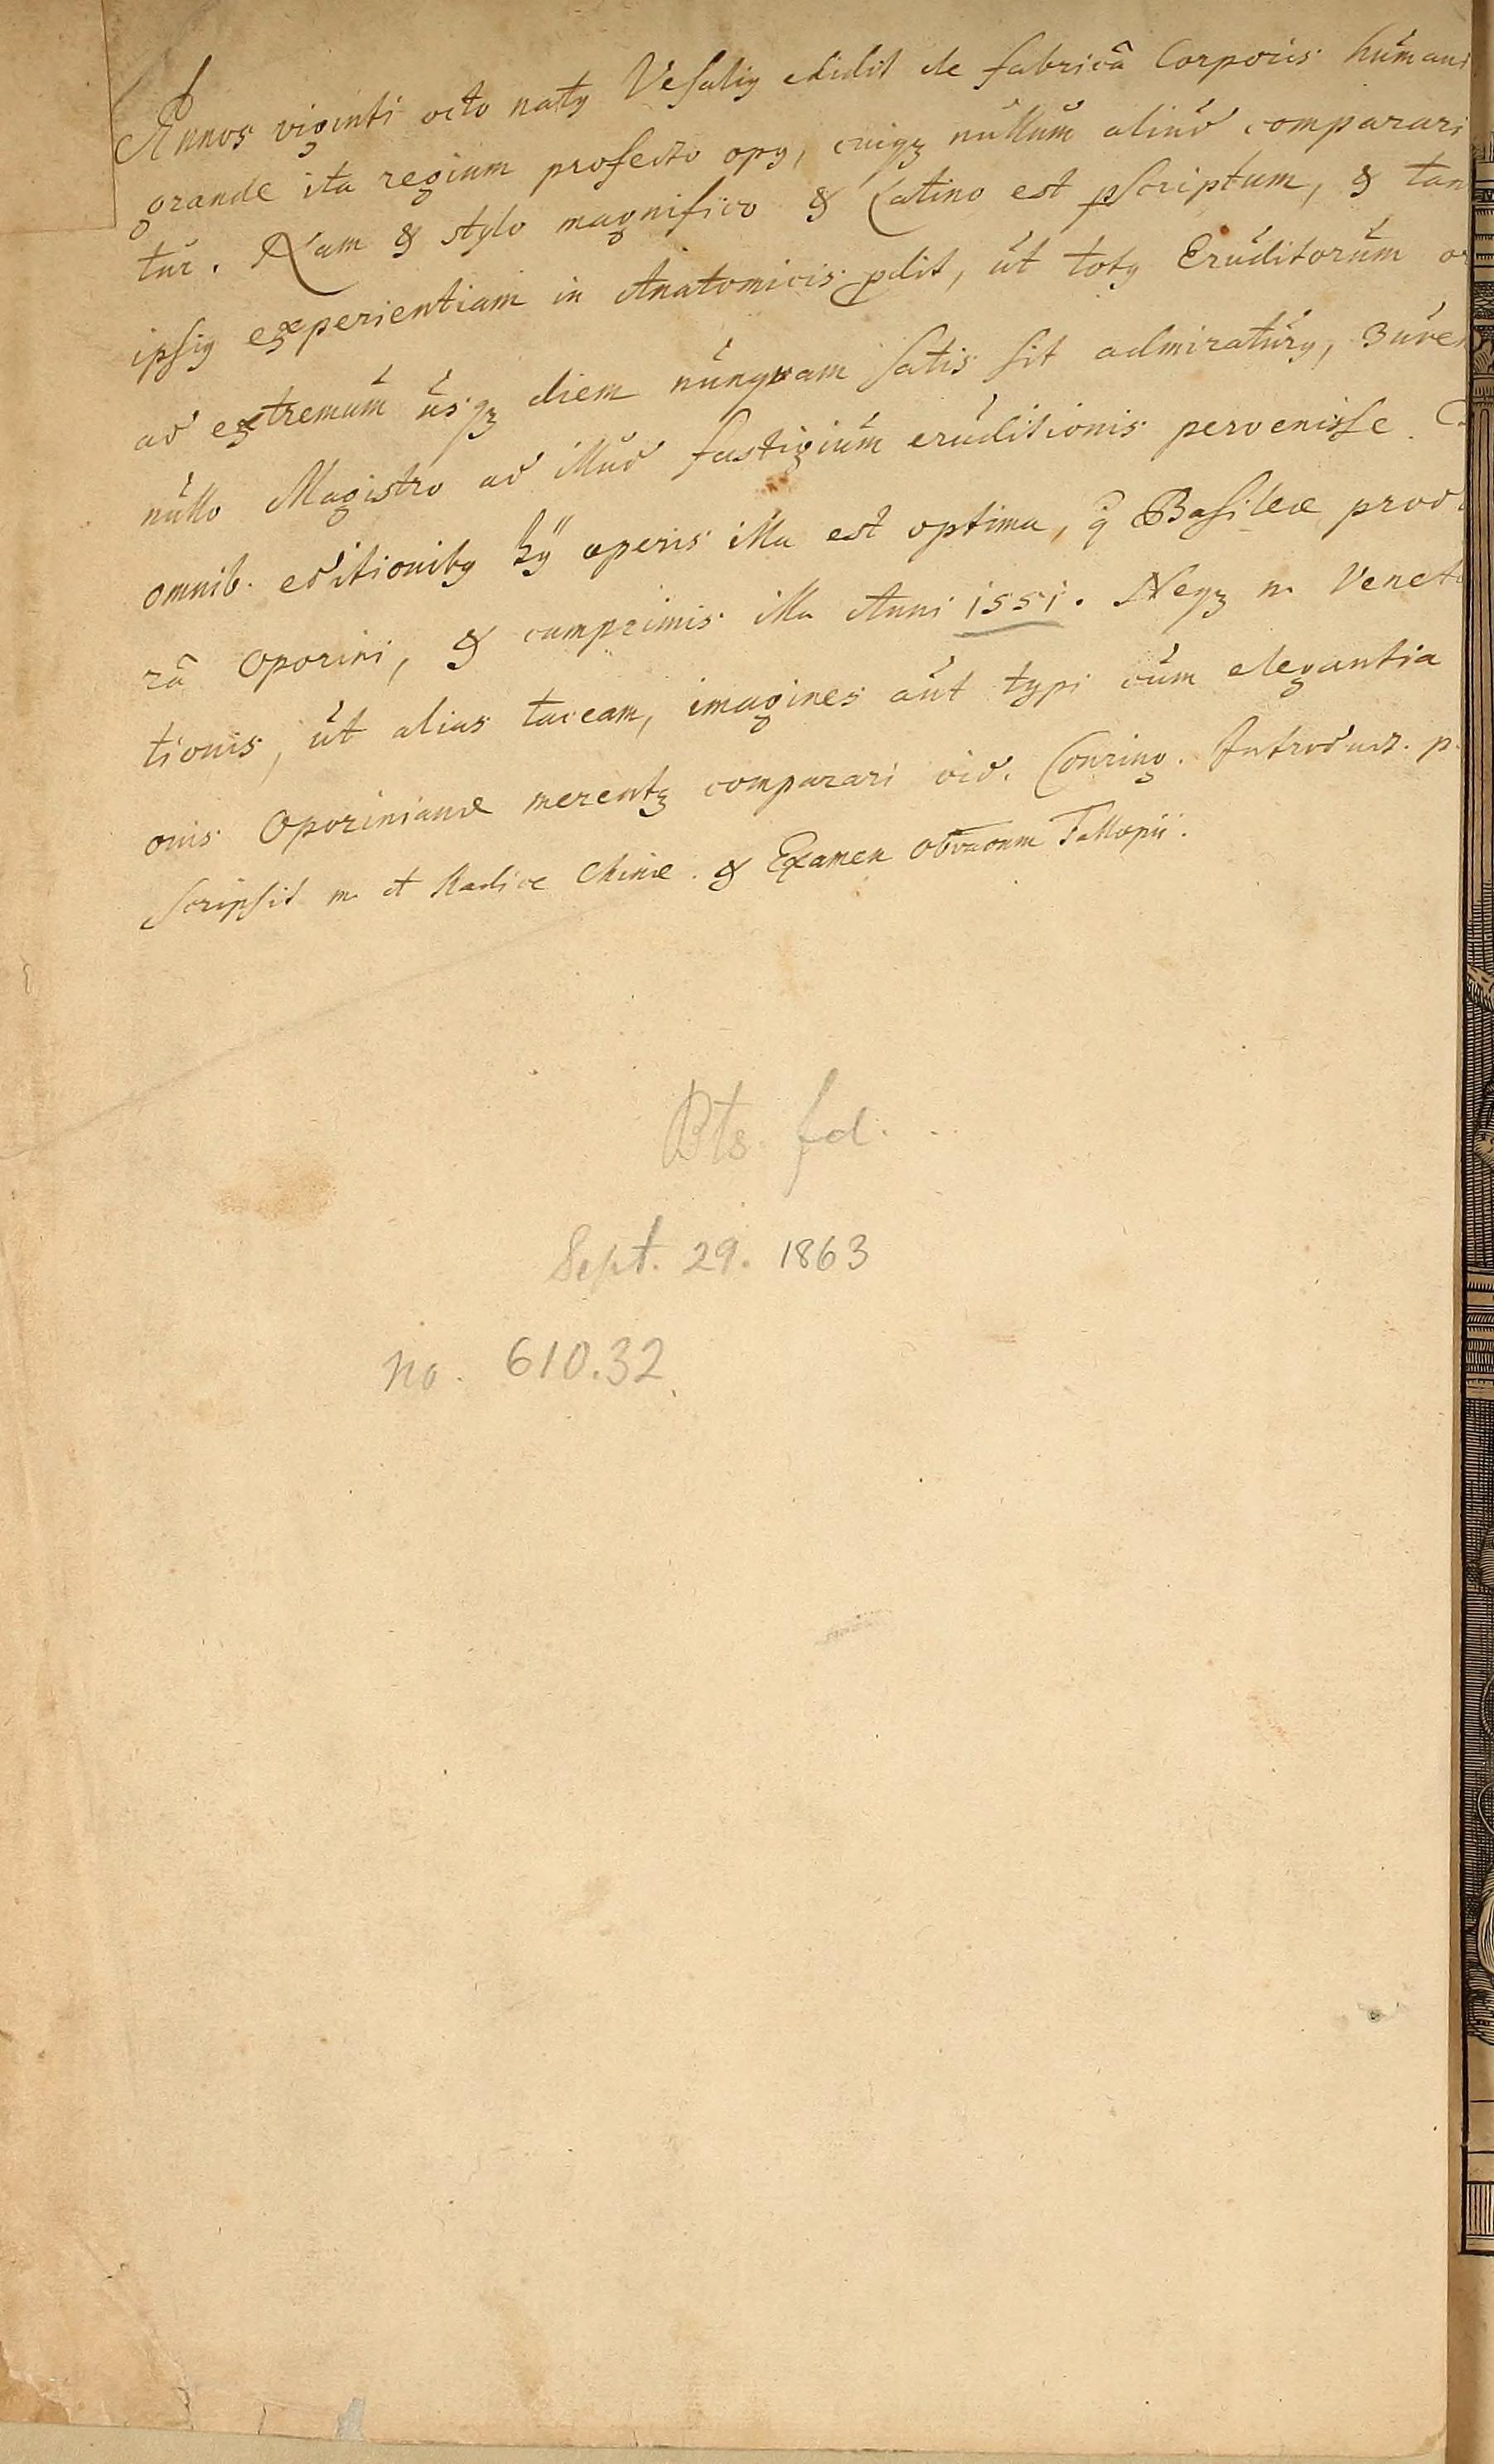 Annos viginti octo natꝰ Vesaliꝰ edidit de fabricâ Corporis humani
grande ita regium profecto opꝰ, cuiqꝫ nullum aliud comparari
tur. Nam & stylo magnifico & Latino est pscriptum, & tan
ipsiꝰ experientiam in Anatomicis pdit, ut totꝰ Eruditorum or
ad extremum usqꝫ diem nunquam satis sit admiraturꝰ, Juven
nullo Magistro ad illud fastigium eruditionis pervenisse.
omnib. editionibꝰ hꝰ operis illa est optima, q̄ Basileæ prod
râ Oporini, & cumprimis illa Anni 1551. Neqꝫ n. Venet
tionis, ut alias taceam, imagines aut typi cum elegantia
onis Oporinianæ merentꝫ comparari vid. Conring. Introduct. p.
Scripsit n. et Radice Chinæ. & Examen obvaonum Fallopii.
Bts. fd.
Sept. 29. 1863
no. 610.32